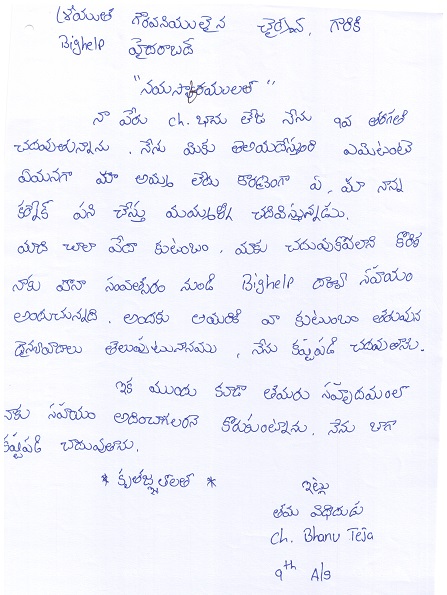 శ్రీయుత గౌరవనియులైన చైర్మన్, గారికి
Bighelp హైదరాబాద్
"నమస్కారములతో"
నా పేరు ch. భాను తేజ నేను 9వ తరగతి
చదువుతున్నాను. నేను మికు తెలియచేస్తుంది ఎమిటంటె
ఏమనగా మా అమ్మ లేదు కారణంగా ఏ, మా నాన్న
పని చేస్తు మమ్మల్ని చదివిస్తున్నాడు.
మాది చాలా పేదా కుటుంబం. మాకు చదువుకొవాలానే కొరిక
నాకు పోనా సంవత్సరం నుండి Bighelp ద్వారా సహయం
అందుచున్నది. అందుకు తమరికి నా కుటుంబం తరువున
దైన్యవాదాలు తెలుపుటునానము, నేను కష్టపడి చదువుతాను.
ఇక ముందు కూడా తమరు సహృదయంలో
నాకు సహయం అదించాగలరని కొరుకుంటున్నాను. నేను బాగా
కష్టపడి చాదువుతాను.
* కృతజ్ఞతలతో *
ఇట్లు
తమ విధేయుడు
Ch. Bhanu Teja
9th A/9